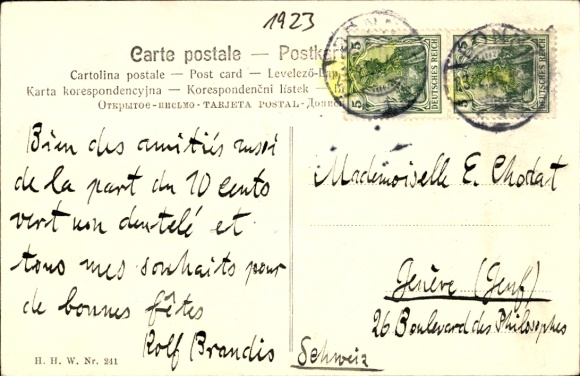 1923
Carte postale — Postkarte
Cartolina postale — Post card — Levelező-Lap
Karta korespondencyjna — Korespondenční lístek —
Открытое-письмо - TARJETA POSTAL -
5 DEUTSCHES REICH 5
5 DEUTSCHES REICH 5
Bien des amitiés aussi
de la part du 10 cents
vert non dentelé et
tous mes souhaits pour
de bonnes fêtes
Rolf Brandis
Mademoiselle E. Chodat
Genève (Genf)
26 Boulevard des Philosophes
Schweiz
H. H. W. Nr. 241